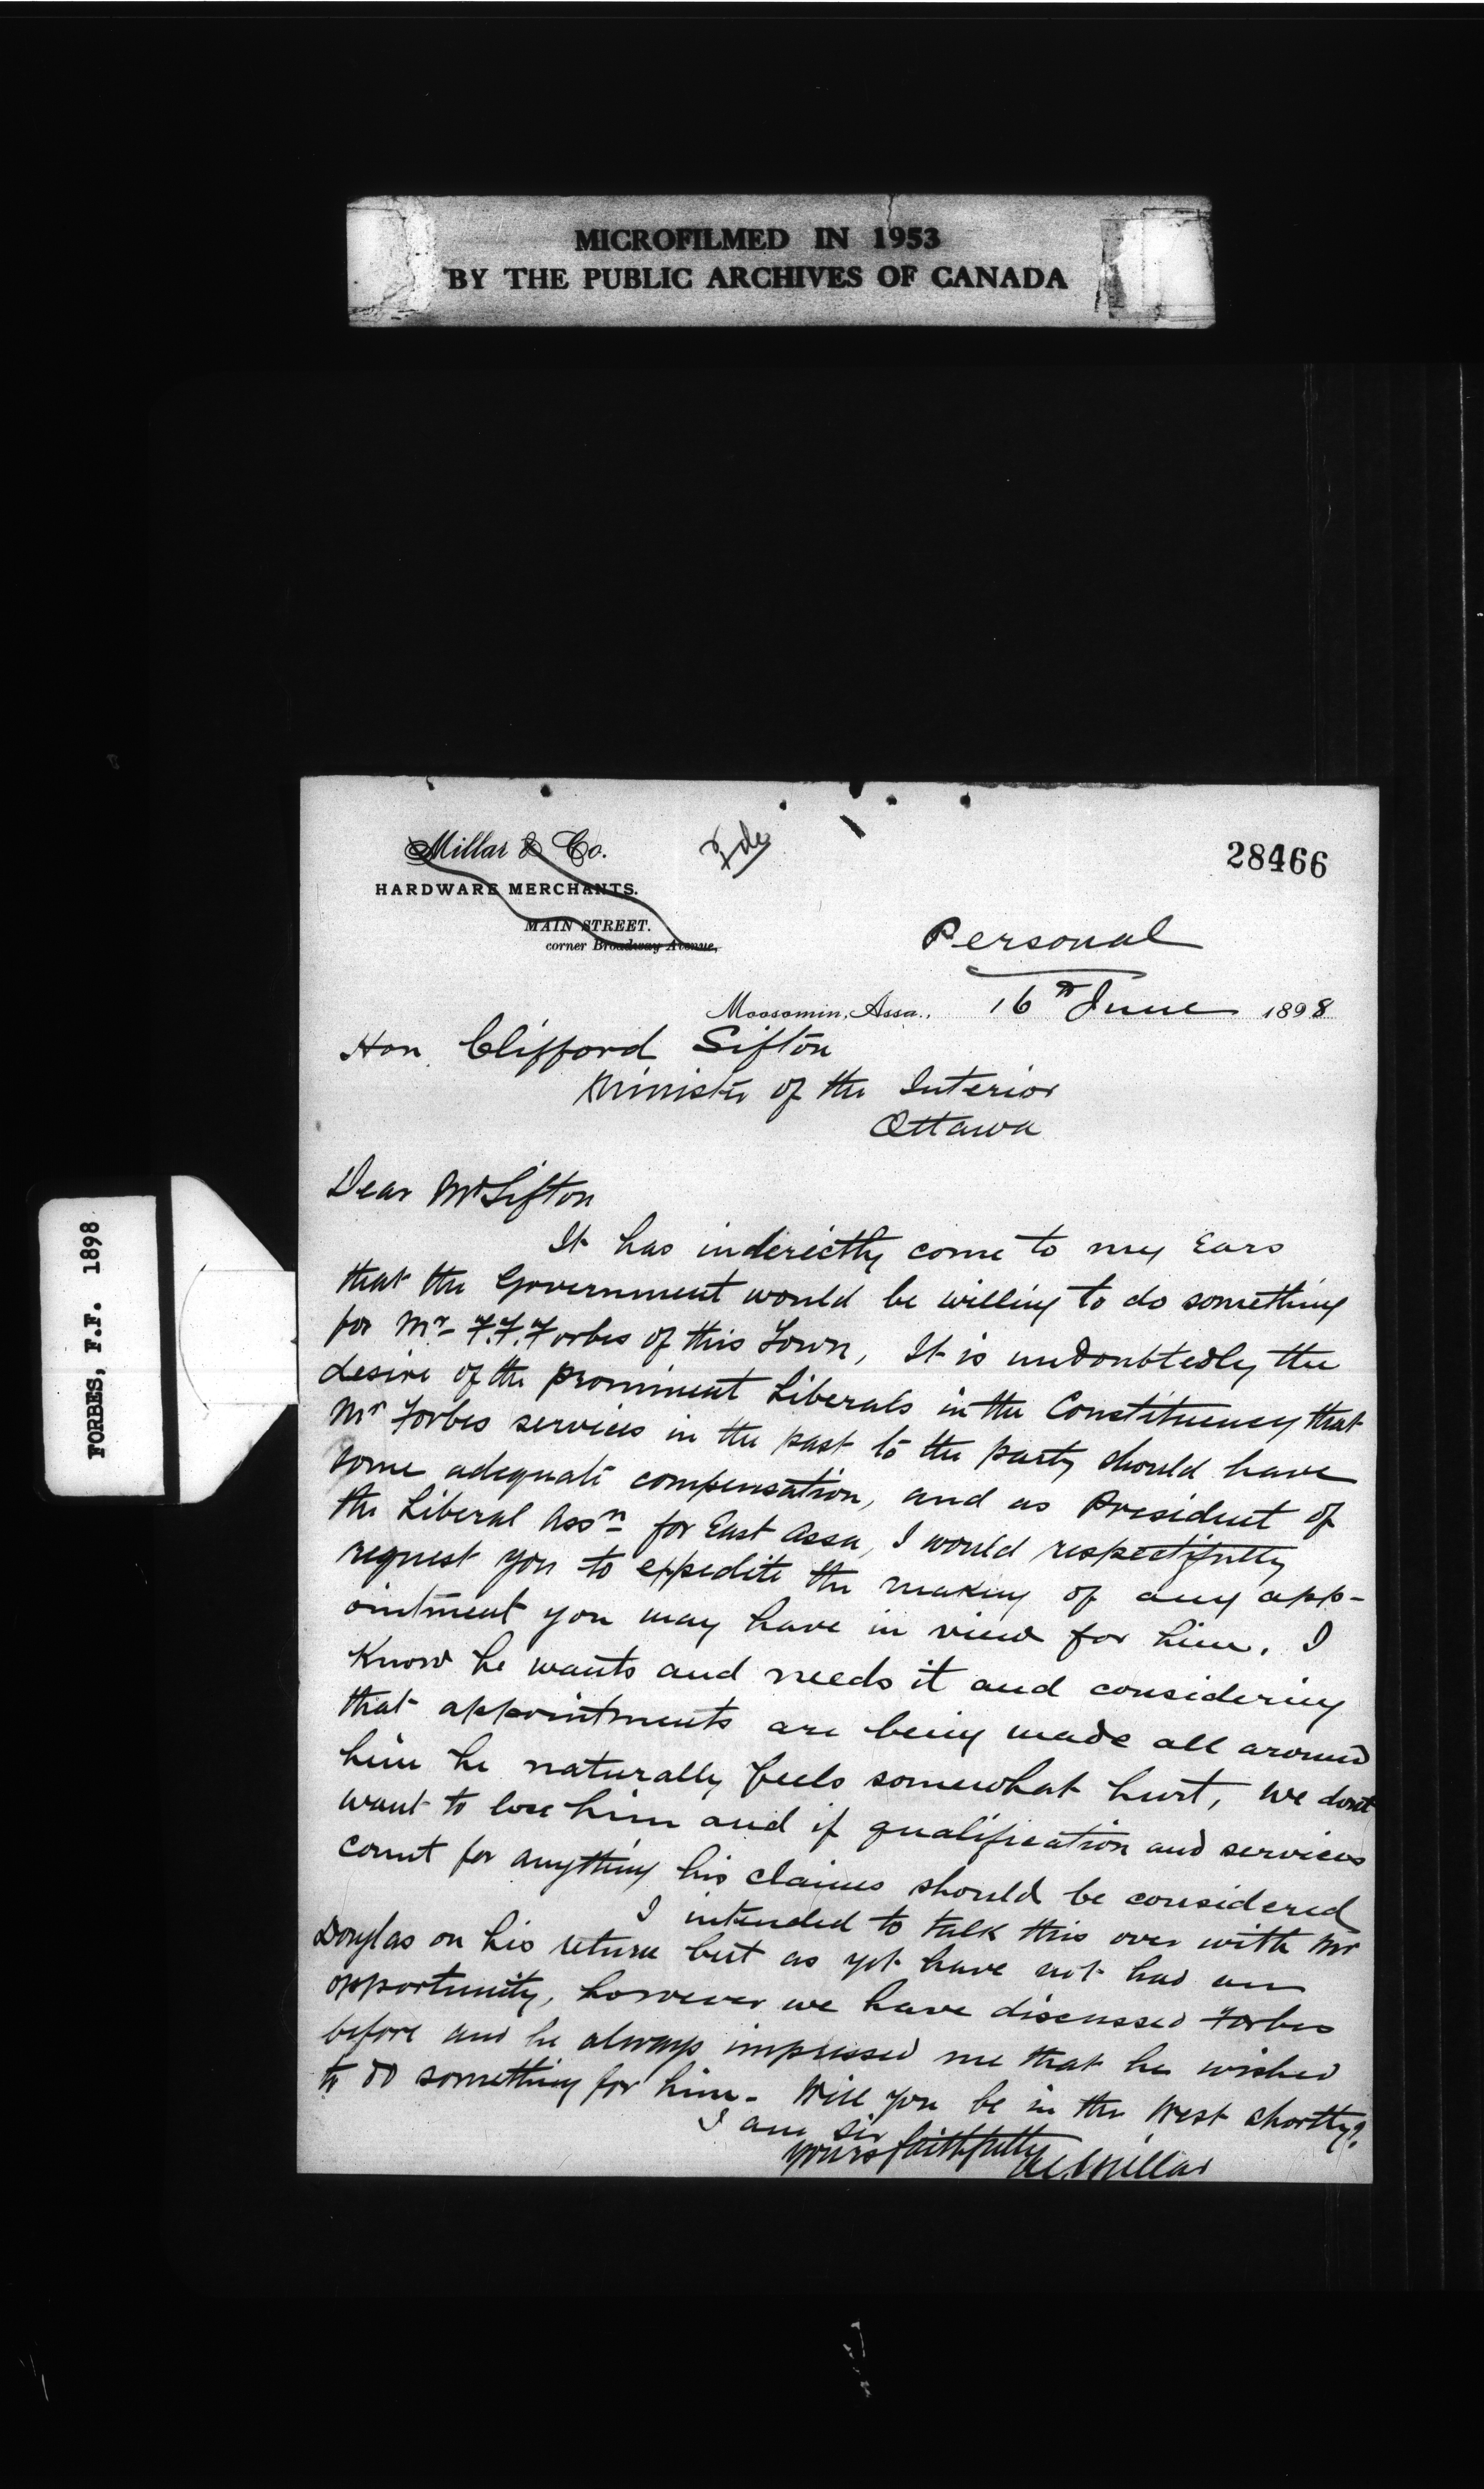 MICROFILMED IN 1953
BY THE PUBLIC ARCHIVES OF CANADA
FORBES, F.F. 1898
Millar & Co.
HARDWARE MERCHANTS.
MAIN STREET.
corner Broadway Avenue,
28466
Personal
Moosomin, Assa., 16th June 1898
Hon. Clifford Sifton
Minister of the Interior
Ottawa
Dear Mr Sifton
It has inderictly come to my Ears
that the Government would be willing to do something
for Mr F.F. Forbes of this Town, It is undoubtedly the
desire of the prominent Liberals in the Constituency that
Mr Forbes services in the past to the party should have
some adequate compensation, and as President of
the Liberal Assn for East Assa, I would respectifully
request you to expedite the making of any app-
ointment you may have in view for him. I
Know he wants and needs it and considering
that appointments are being made all around
him he naturally feels somewhat hurt, we dont
want to lose him and if qualification and services
count for anything his claims should be considered
I intended to talk this over with Mr
Douglas on his return but as yet have not had an
opportunity, however we have discussed Forbes
before and he always impressed me that he wished
to do something for him - Will you be in the West shortly?
I am sir
yours faithfully
Millar